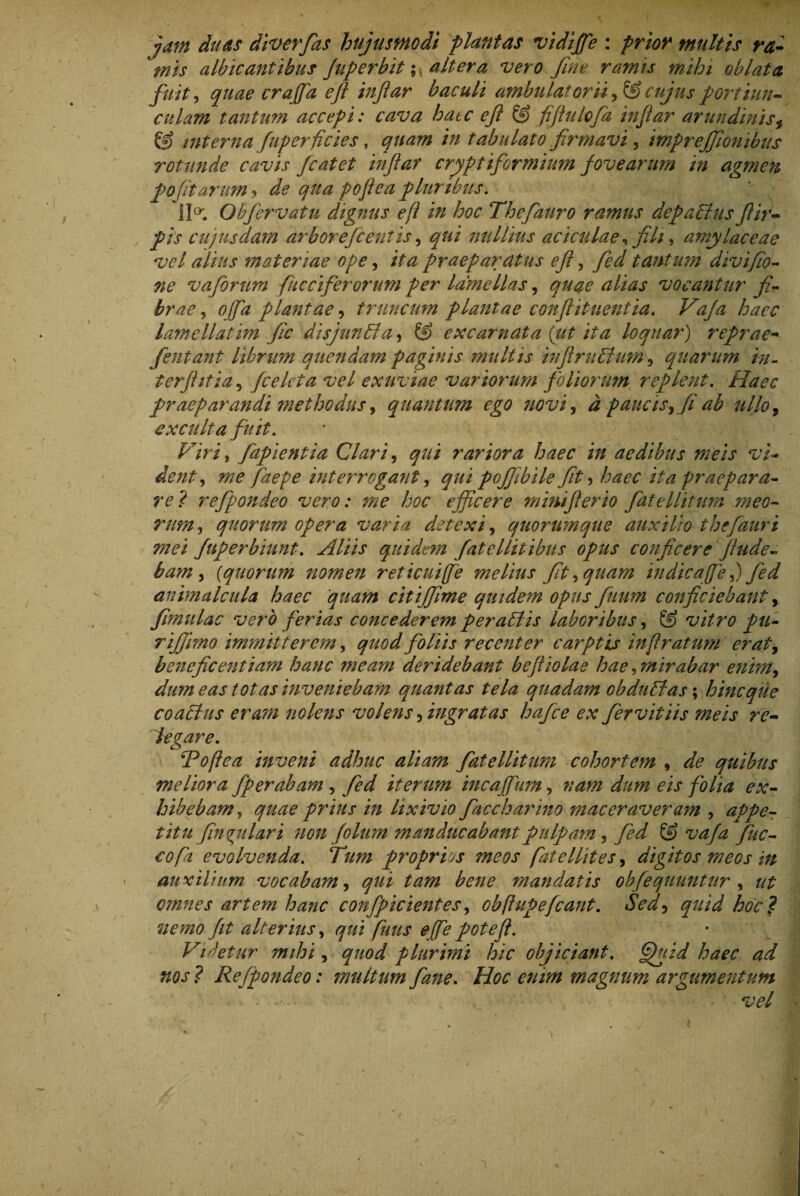 jam duas diverſas hujusmodi plantas vidiſſe : prior multis ra-
mis albicantibus ſuperbit; altera vero ſine ramis mihi oblata
fuit, quae craſſa eſt inſtar baculi ambulatorii, & cujus portiun-
culam tantum accepi: cava haec eſt & fiſtuloſa inſtar arundinis,
& interna ſuperficies, quam in tabulato firmavi, impreſſionibus
rotunde cavis ſcatet inſtar cryptiformium fovearum in agmen
poſitarum, de qua poſtea pluribus.
IIº. Obſervatu dignus eſt in hoc Theſauro ramus depactus ſtir-
pis cujusdam arboreſcentis, qui nullius aciculae, fili, amylaceae
vel alius materiae ope, ita praeparatus eſt, ſed tantum diviſio-
ne vaſorum ſucciferorum per lamellas, quae alias vocantur fi-
brae, oſſa plantae, truncum plantae conſtituentia. Vaſa haec
lamellatim ſic disjuncta, & excarnata (ut ita loquar) reprae-
ſentant librum quendam paginis multis inſtructum, quarum in-
terſtitia, ſceleta vel exuviae variorum foliorum replent. Haec
praeparandi methodus, quantum ego novi, à paucis, ſi ab ullo,
exculta fuit.
Viri, ſapientia Clari, qui rariora haec in aedibus meis vi-
dent, me ſaepe interrogant, qui poſſibile ſit, haec ita praepara-
re? reſpondeo vero: me hoc efficere miniſterio ſatellitum meo-
rum, quorum opera varia detexi, quorumque auxilio theſauri
mei ſuperbiunt. Aliis quidem ſatellitibus opus conficere ſtude-
bam, (quorum nomen reticuiſſe melius ſit, quam indicaſſe,) ſed
animalcula haec quam citiſſime quidem opus ſuum conficiebant,
ſimulac verò ferias concederem peractis laboribus, & vitro pu-
riſſimo immitterem, quod foliis recenter carptis inſtratum erat,
beneficentiam hanc meam deridebant beſtiolae hae, mirabar enim,
dum eas totas inveniebam quantas tela quadam obductas; hincque
coactus eram nolens volens, ingratas haſce ex ſervitiis meis re-
legare.
Poſtea inveni adhuc aliam ſatellitum cohortem, de quibus
meliora ſperabam, ſed iterum incaſſum, nam dum eis folia ex-
hibebam, quae prius in lixivio ſaccharino maceraveram, appe-
titu ſingulari non ſolum manducabant pulpam, ſed & vaſa ſuc-
coſa evolvenda. Tum proprios meos ſatellites, digitos meos in
auxilium vocabam, qui tam bene mandatis obſequuntur, ut
omnes artem hanc conſpicientes, obſtupeſcant. Sed, quid hoc?
nemo ſit alterius, qui ſuus eſſe poteſt.
Videtur mihi, quod plurimi hic objiciant. Quid haec ad
nos? Reſpondeo: multum ſane. Hoc enim magnum argumentum
vel